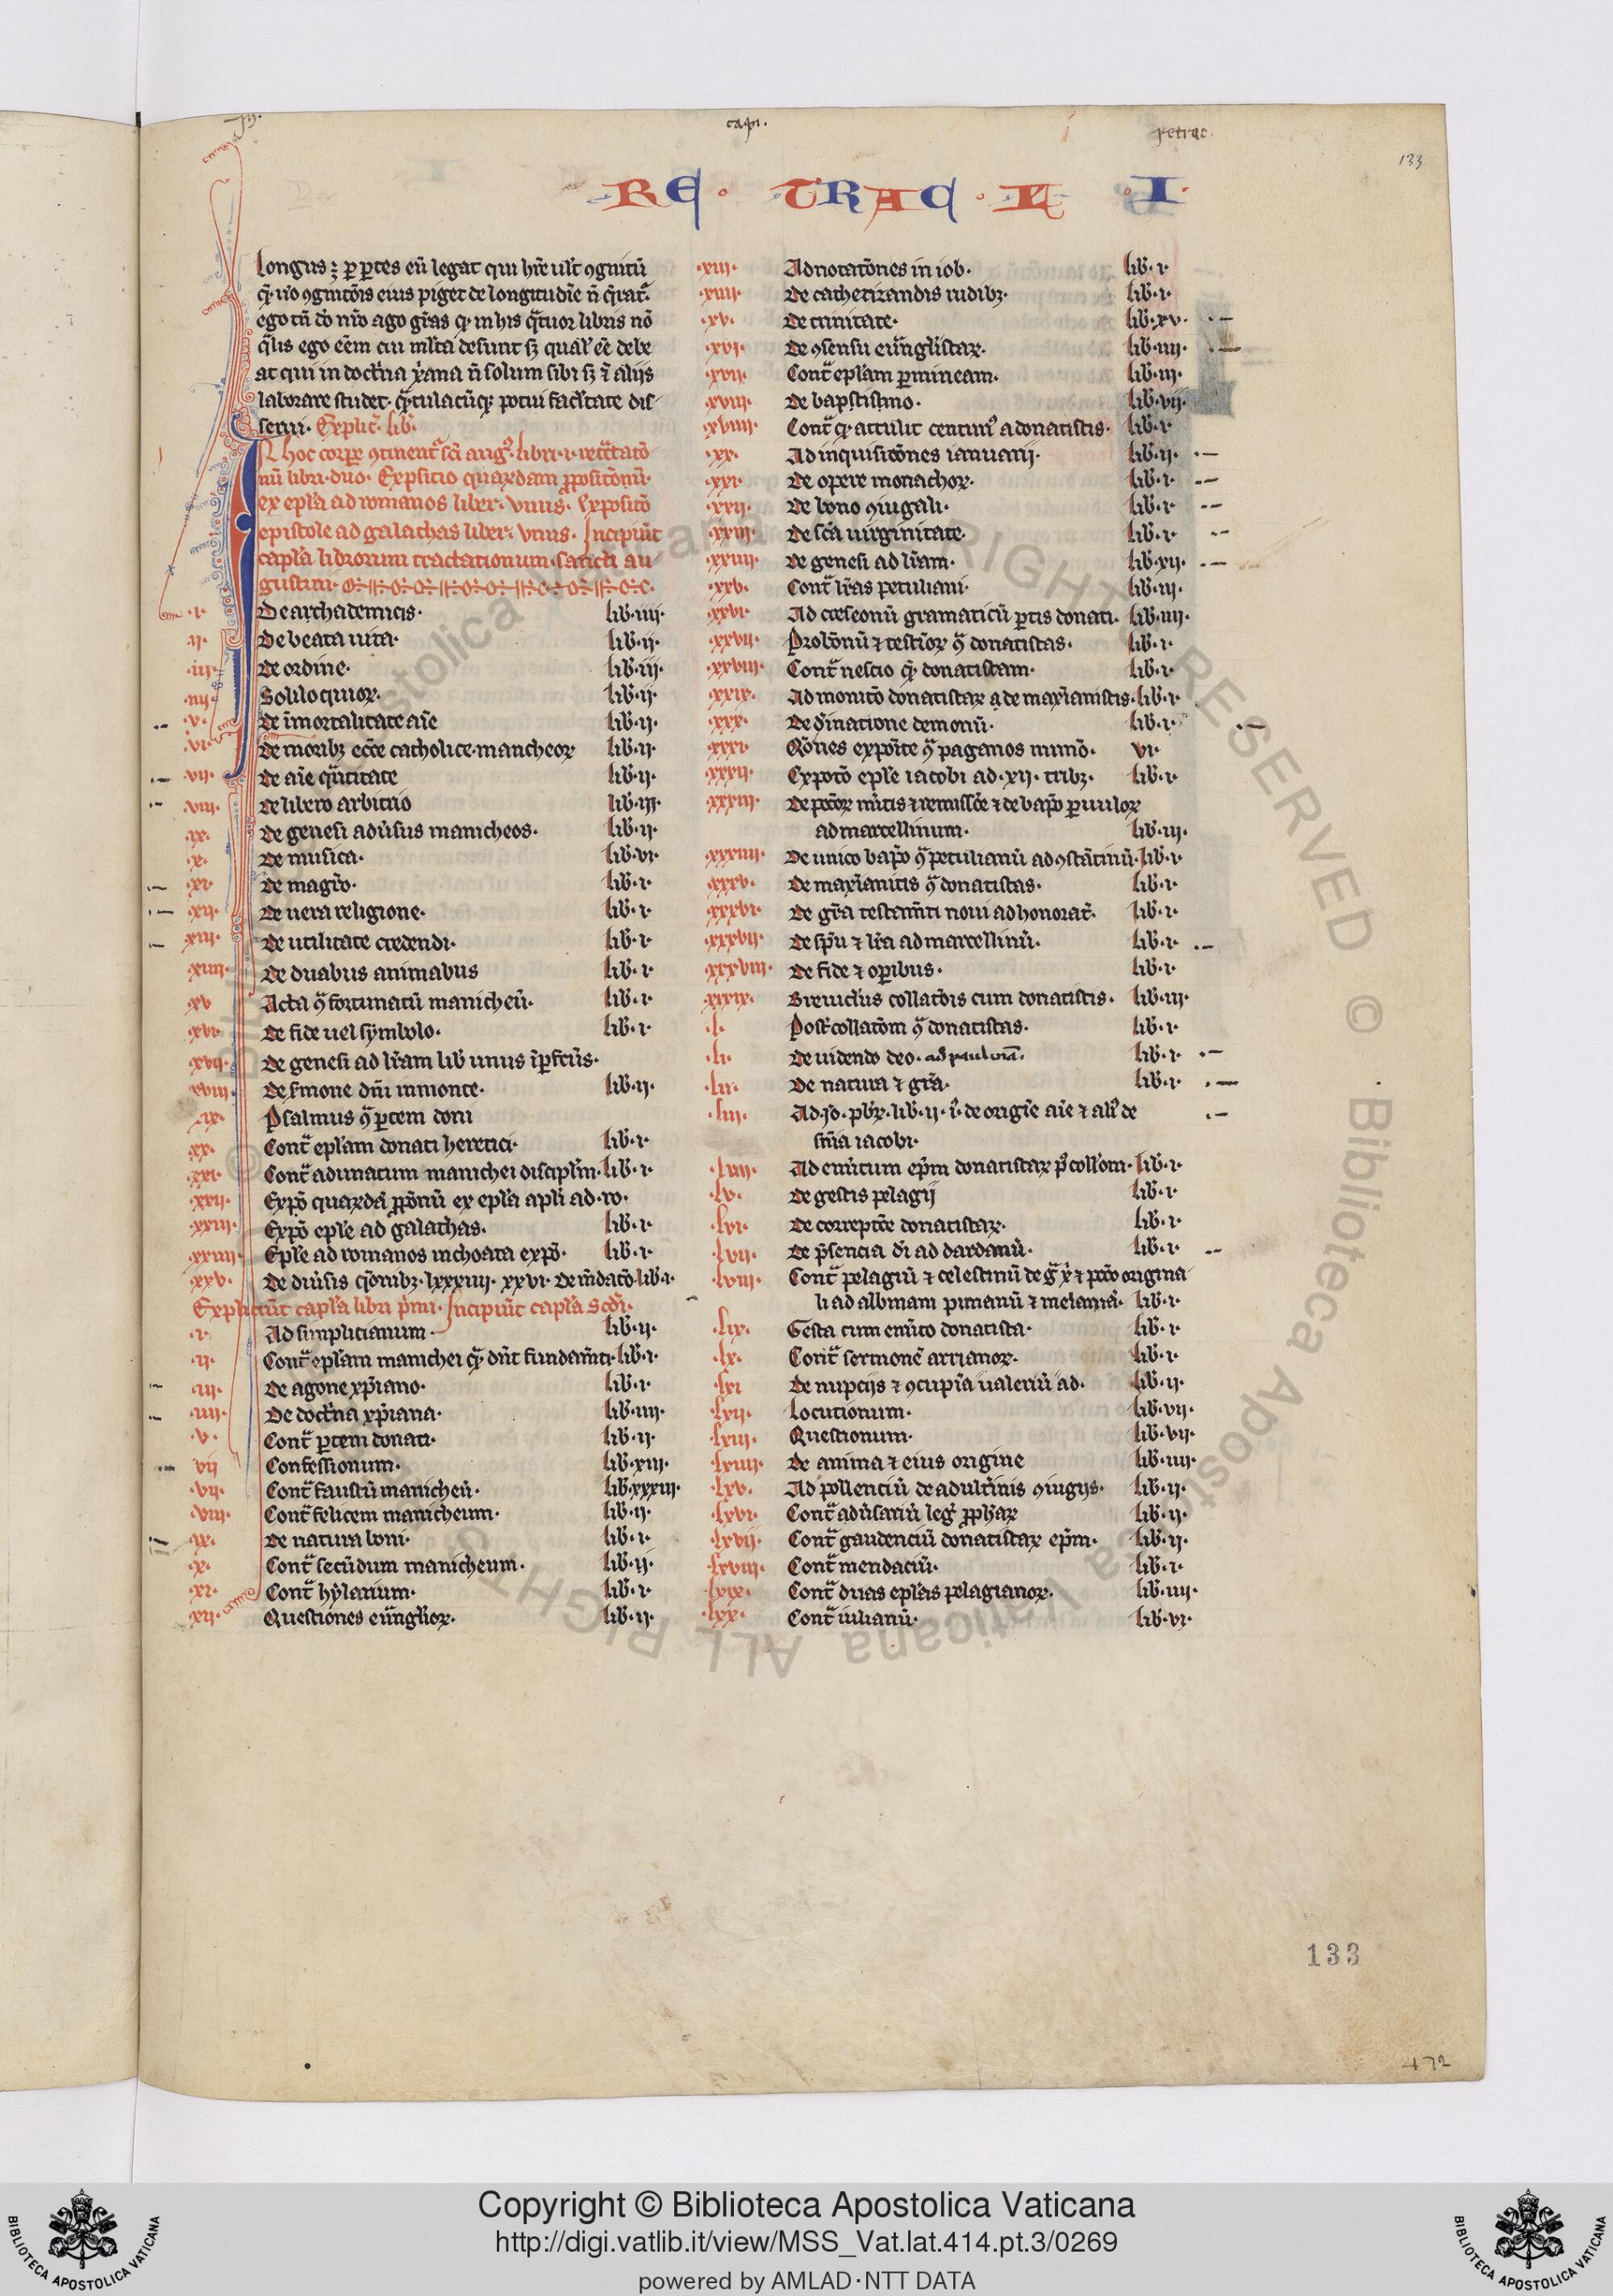 capi.
retrac
133
RE · TRAC · L I
longus; ꝑ ꝑtes eū legat qui hr̄e ult ꝯgnitū
ego tn̄ dō nr̄o ago gr̄as ꝙ in his q̄tuor libris nō
q̄lis ego eēm cui ml̄ta desunt sꝫ qual' eē debe
at qui in doct̄na xp̄ana n̄ solum sibi sꝫ ⁊ alijs
laborare studet. q̄ntulacūqꝫ potui facl̄tate dis
serui. Explic̄ lib̄.
ex epl̄a ad romanos liber. Unus. Expositō
epistole ad galathas liber. Unus. Incipiūt
capl̄a librorum tractationum sancti au
gustini.
.i. De archademicis. lib̄.iiii.
.ii. De beata uita. lib̄.ii.
.iii. De ordine. lib̄.iii.
.iiii. Soliloquioꝝ. lib̄.ii.
.v. De īmortalitate aīe lib̄.ii.
.vi. De moribꝫ ecc̄e catholice.maneheoꝝ lib̄.ii.
.vii. De aīe qn̄titate lib̄.ii.
.viii. De libero arbitrio lib̄.iii.
.ix. De genesi adūsus manicheos. lib̄.ii.
.x. De musica. lib̄.vi.
.xi. De magr̄o. lib̄.i.
.xii. De uera religione. lib̄.i.
.xiii. De utilitate credendi. lib̄.i.
.xiiii. De duabus animabus lib̄.i.
.xv Acta ꝯ̄ fortunatū manicheū. lib̄.i.
.xvi. De fide uel symbolo. lib̄.i.
.xvii. De genesi ad lr̄am lib̄ unus īꝑfectꝰ.
.xviii. De ẜmone dn̄i in monte. lib̄.ii.
.ix. Psalmus ꝯ̄ ꝑtem doni
.xx. Cont̄ epl̄am donati heretici. lib̄.i.
.xxi. Cont̄ adimatum manichei discipl̄m. lib̄.i.
.xxii. Expō quarūdā ꝓpōnū ex epl̄a apl̄i ad.ro.
.xxiii. Expō epl̄e ad galathas. lib̄.i.
.xxiiii. Epl̄e ad romanos inchoata expō. lib̄.i.
.xxv. De diūsis qōnibꝫ.lxxxiiii. xxvi. De mn̄dacō.lib̄.i.
Expliciūt capl̄a libri p̄mi. Incipiūt capl̄a scd̄i.
.i. Ad simplicianum. lib̄.ii.
.ii. Cont̄ epl̄am manichei q̄ dn̄t fundam̄ti. lib̄.i.
.iii. De agone xp̄iano. lib̄.i.
.iiii. De doct̄na xp̄iana. lib̄.iiii.
.v. Cont̄ ꝑtem donati. lib̄.ii.
vii Confessionum. lib̄.xiii.
.vii. Cont̄ faustū manicheū. lib̄.xxxiii.
.viii. Cont̄ felicem manicheum. lib̄.ii.
.ix. De natura boni. lib̄.i.
.x. Cont̄ secūdum manicheum. lib̄.ii.
.xi. Cont̄ hylarium. lib̄.i.
.xii. Questiones euūglioꝝ. lib̄.ii.
.xiii. Adnotatōnes in iob. lib̄.i.
.xiiii. De cathetizandis rudibꝫ. lib̄.i.
.xv. De trinitate. lib̄.xv.
.xvi. De ꝯsensu euūglistaꝝ. lib̄.iiii.
.xvii. Cont̄ epl̄am ꝑmineam. lib̄.iii.
.xviii. De baptismo. lib̄.vii.
.xviiii. Cont̄ ꝙ attulit centuriꝰ a donatistis. lib̄.i.
.xx. Ad inquisitōnes ianuarij. lib̄.ii.
.xxi. De opere monachoꝝ. lib̄.i.
.xxii. De bono ꝯiugali. lib̄.i.
.xxiii. De sc̄a uirginitate. lib̄.i.
.xxiiii. De genesi ad lr̄am. lib̄.xii.
.xxv. Cont̄ lr̄as petuliani. lib̄.iii.
.xxvi. Ad cresconū gramaticū ꝑtis donati. lib̄.iiii.
.xxvii. Probōnū ⁊ testīoꝝ ꝯ̄ donatistas. lib̄.i.
.xxviii. Cont̄ nescio q̄ donatistam. lib̄.i.
.xxix. Ad monitō donatistaꝝ a de maxīanistis. lib̄.i.
.xxx. De diuinatione demonū. lib̄.i.
.xxxi. Qōnes expoīte ꝯ̄ paganos numō. vi.
.xxxii. Expotō epl̄e iacobi ad.xii.tribꝫ. lib̄.i.
.xxxiii. De pctōꝝ m̄itis ⁊ remissōe ⁊ de bap̄o ꝑuuloꝝ
ad marcellinum. lib̄.iii.
.xxxiiii. De unico bap̄o ꝯ̄ petulianū ad ꝯstātinū. lib̄.i.
.xxxv. De maxīanitis ꝯ̄ donatistas. lib̄.i.
.xxxvi. De gr̄a testam̄ti noui ad honorat̄. lib̄.i.
.xxxvii. De sp̄u ⁊ lr̄a ad marcellinū. lib̄.i.
.xxxviii. De fide ⁊ oꝑibus. lib̄.i.
.xxxix. Breuiclꝰus collatōis cum donatistis. lib̄.iii.
.l. Post collatōm ꝯ̄ donatistas. lib̄.i.
.li. De uidendo deo. ad paulinā. lib̄.i.
.lii. De natura ⁊ gr̄a. lib̄.i.
.liii. Ad.io.pb̄r.lib̄.ii.i. de origīe aīe ⁊ alꝰ de
sn̄ia iacobi.
.liiii. Ad em̄itum ep̄m donatistaꝝ pꝰ coll'om. lib̄.i.
.lv. De gestis pelagij lib̄.i.
.lvi. De correptōe donatistaꝝ. lib̄.i.
.lvii. De p̄sencia di ad dardanū. lib̄.i.
.lviii. Cont̄ pelagiū ⁊ celestinū de gr̄ xp̄i ⁊ pctō origina
li ad albinam pinianū ⁊ melaniā. lib̄.i.
.lix. Gesta cum em̄ito donatista. lib̄.i.
.lx. Cont̄ sermonē arrianoꝝ. lib̄.i.
.lxi De nuptijs ⁊ ꝯcupīa ualeriū ad. lib̄.ii.
.lxii. Locutionum. lib̄.vii.
.lxiii. Questionum. lib̄.vii.
.lxiiii. De anima ⁊ eius origine lib̄.iiii.
.lxv. Ad pollenciū de adult̄inis ꝯiugijs. lib̄.ii.
.lxvi. Cont̄ adūsariū leg' ꝓphaꝝ lib̄.ii.
.lxvii. Cont̄ gaudenciū donatistaꝝ ep̄m. lib̄.ii.
.lxviii. Cont̄ mendaciū. lib̄.i.
.lxix. Cont̄ duas epl̄as pelagianoꝝ. lib̄.iiii.
.lxx. Cont̄ iulianū. lib̄.vi.
133
472
© Biblioteca Apostolica Vaticana ALL RIGHTS RESERVED
BIBLIOTECA APOSTOLICA VATICANA
Copyright © Biblioteca Apostolica Vaticana
http://digi.vatlib.it/view/MSS_Vat.lat.414.pt.3/0269
powered by AMLAD·NTT DATA
BIBLIOTECA APOSTOLICA VATICANA